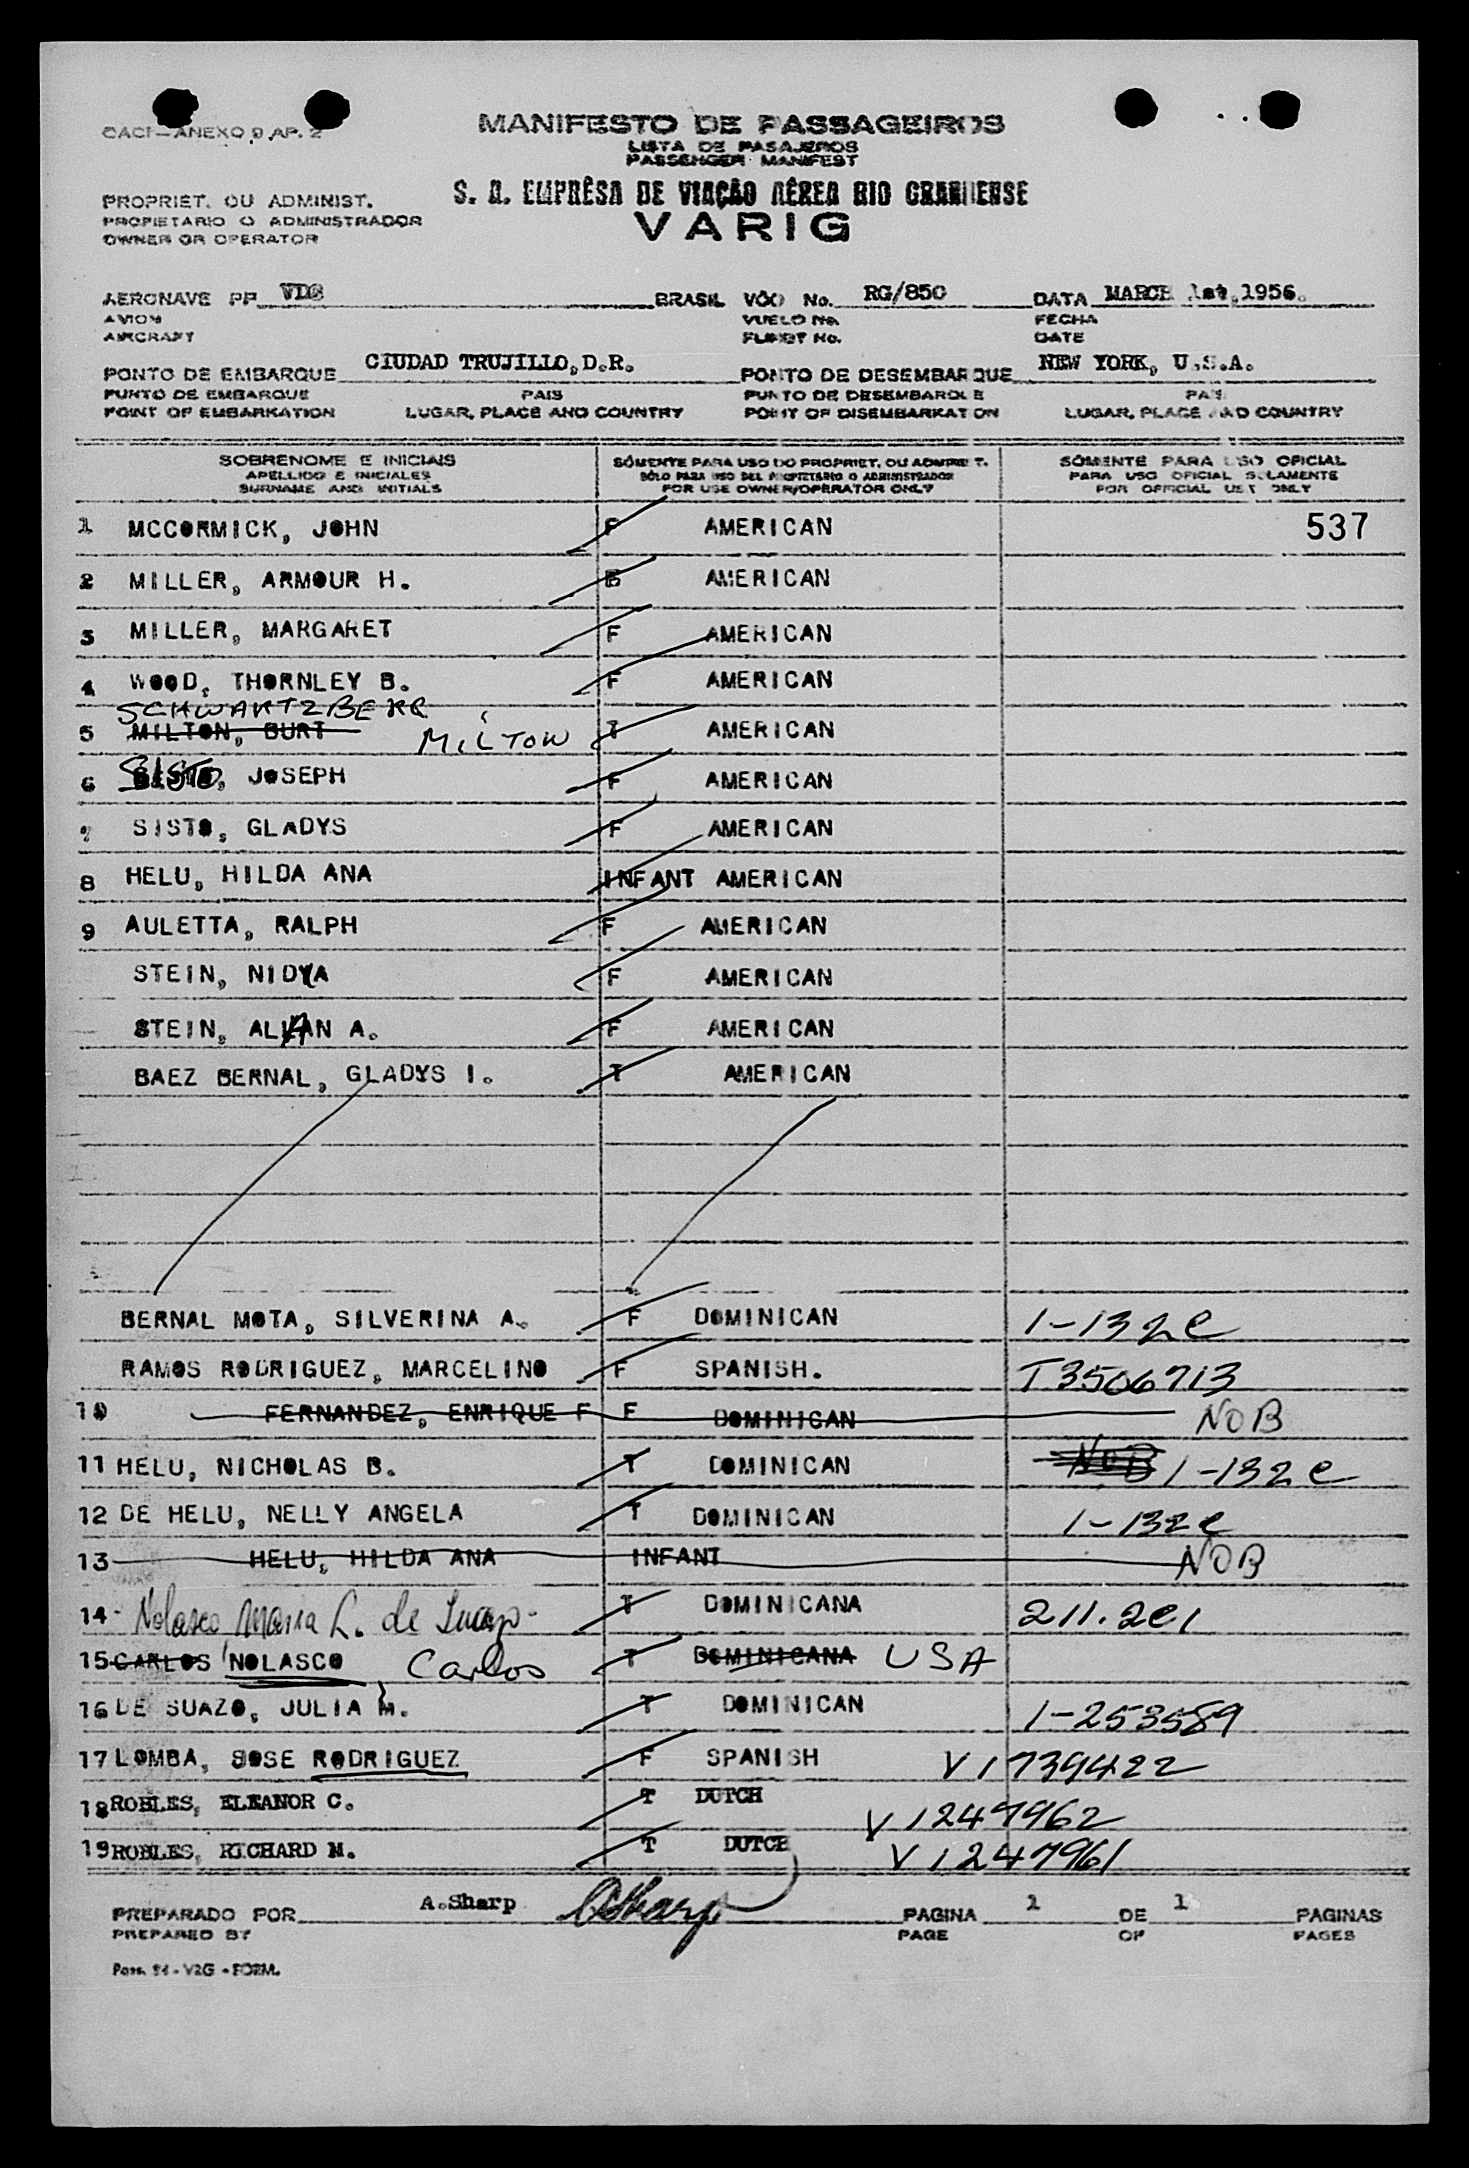 OACI - ANEXO 9 AP. 2
MANIFESTO DE PASSAGEIROS
LISTA DE PASAJEROS
PASSENGER MANIFEST
S. A. EMPRÊSA DE VIAÇÃO AÉREA RIO GRANDENSE
VARIG
PROPRIET. OU ADMINIST.
PROPIETARIO O ADMINISTRADOR
OWNER OR OPERATOR
AERONAVE PP BRASIL VÔO No. RG/850 DATA MARCH 1st, 1956.
AVION VUELO No. FECHA
AIRCRAFT FLIGHT No. DATE
PONTO DE EMBARQUE CIUDAD TRUJILLO, D.R. PONTO DE DESEMBARQUE NEW YORK, U.S.A.
PUNTO DE EMBARQUE PAIS PUNTO DE DESEMBARQUE PAIS
POINT OF EMBARKATION LUGAR, PLACE AND COUNTRY POINT OF DISEMBARKATION LUGAR, PLACE AND COUNTRY
SOBRENOME E INICIAIS SÓMENTE PARA USO DO PROPRIET. OU ADMINIST. SÓMENTE PARA USO OFICIAL
APELLIDO E INICIALES SÓLO PARA USO DEL PROPIETARIO O ADMINISTRADOR PARA USO OFICIAL SOLAMENTE
SURNAME AND INITIALS FOR USE OWNER/OPERATOR ONLY FOR OFFICIAL USE ONLY
1 MCCORMICK, JOHN F AMERICAN 537
2 MILLER, ARMOUR H. AMERICAN
3 MILLER, MARGARET F AMERICAN
4 WOOD, THORNLEY B. F AMERICAN
SCHWARTZBERR
5 MILTON, BURT MILTON T AMERICAN
6 SISTO, JOSEPH F AMERICAN
7 SISTO, GLADYS F AMERICAN
8 HELU, HILDA ANA INFANT AMERICAN
9 AULETTA, RALPH F AMERICAN
STEIN, NIDYA F AMERICAN
STEIN, ALLAN A. F AMERICAN
BAEZ BERNAL, GLADYS I. T AMERICAN
BERNAL MOTA, SILVERINA A. F DOMINICAN 1-132e
RAMOS RODRIGUEZ, MARCELINO F SPANISH. T3506713
10 FERNANDEZ, ENRIQUE F F DOMINICAN NOB
11 HELU, NICHOLAS B. T DOMINICAN NOB 1-132e
12 DE HELU, NELLY ANGELA T DOMINICAN 1-132e
13 HELU, HILDA ANA INFANT NOB
14- Nolasco Maria L. de T DOMINICANA 211.2e1
15 CARLOS NOLASCO Carlos T DOMINICANA USA
16 DE SUAZO, JULIA M. T DOMINICAN 1-253589
17 LOMBA, JOSE RODRIGUEZ F SPANISH V1739422
18 ROBLES, ELEANOR C. T DUTCH V1247962
19 ROBLES, RICHARD M. T DUTCH V1247961
PREPARADO POR A.Sharp ASharp PAGINA 1 DE 1 PAGINAS
PREPARED BY PAGE OF PAGES
Pass. 54 - VRG - FORM.